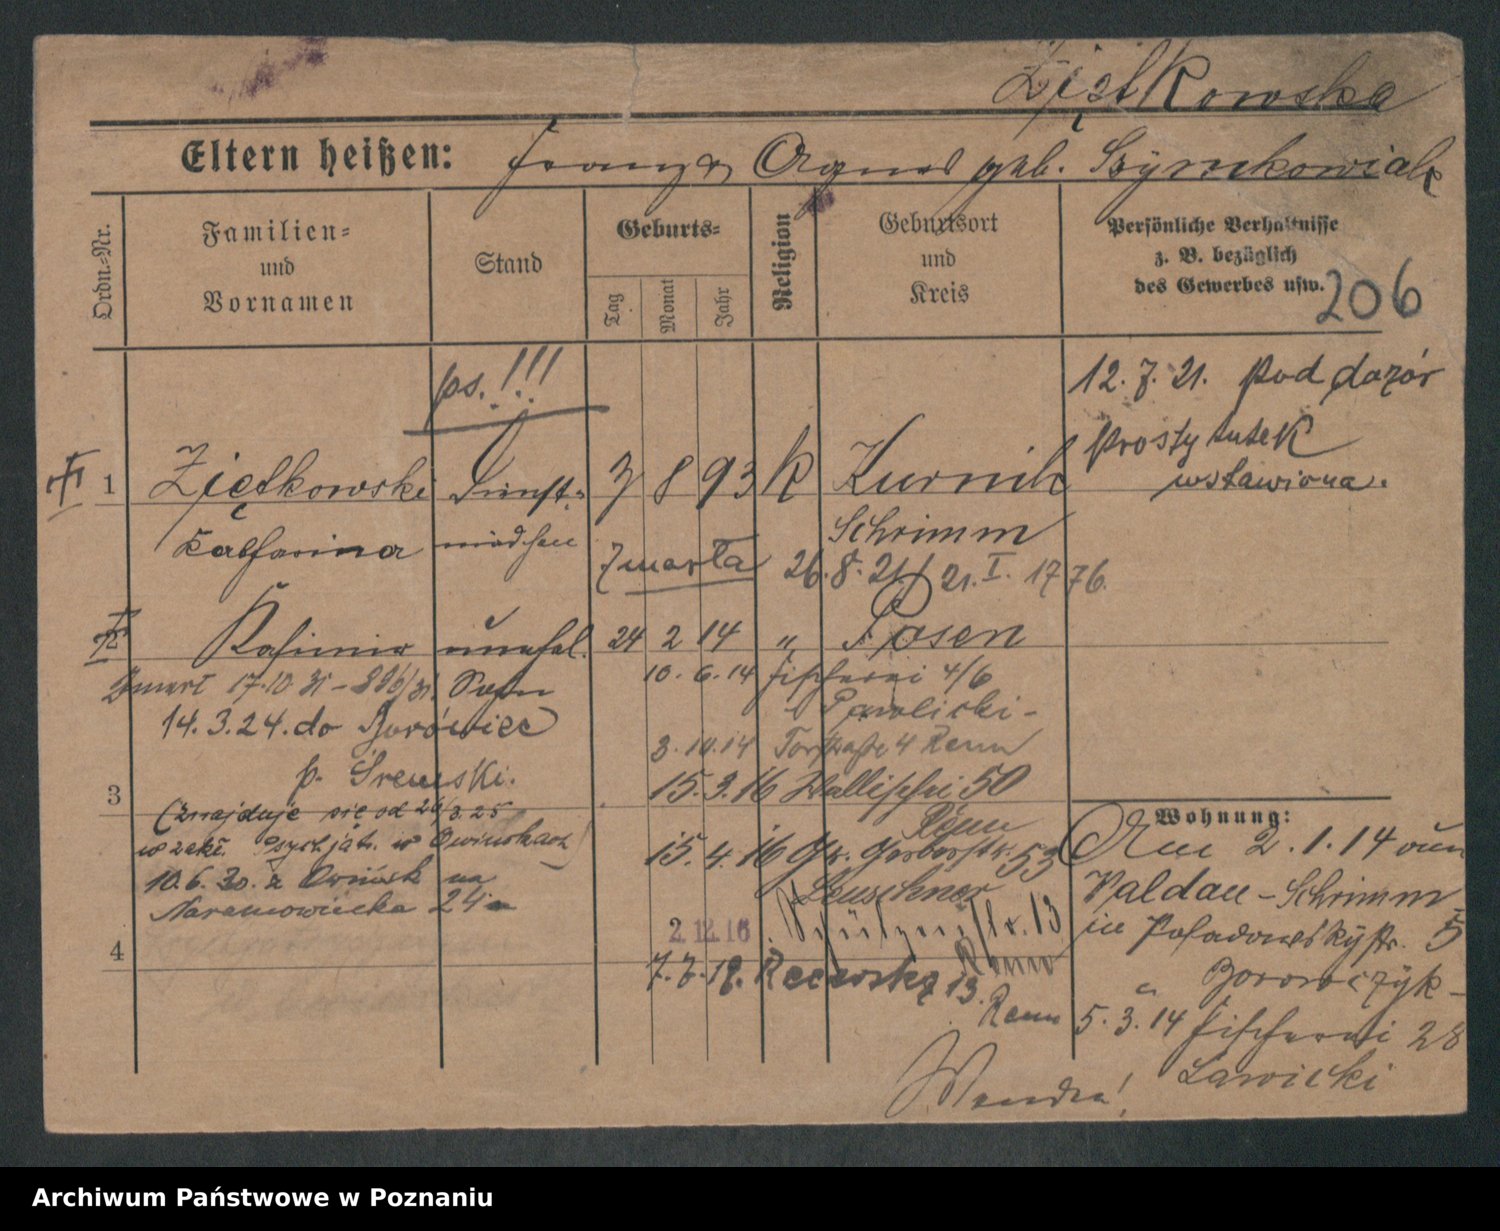 Ziętkowska
Eltern heißen: Franz & Agnes geb. Szymkowiak
Ordn.-Nr.
Familien-
und
Vornamen
Stand
Geburts-
Tag
Monat
Jahr
Religion
Geburtsort
und
Kreis
Persönliche Verhältnisse
z. B. bezüglich
des Gewerbes usw.
206
ps.!!!
12. 7. 21. pod dozór
prostytutek
wstawiona.
1 Ziętkowski Dienst- 7 8 93 k Kurnik
Katharina mädchen Schrimm
zmarła 26.8.21. 21. I. 1776.
2 Kasimir unehel. 24 2 14 " Posen
Zmarł 17.10.31 Sohn
10. 6. 14 Fischerei 4/6
14.3.24. do Borówiec
Pawlicki-
p. Śremski.
3. 10. 14 Torstraße 4 Renn
3
15. 3. 16 Wallischei 50
(znajduje się od 24/3.25
Renn
w zakł. Psychjatr. w Owińskach)
15. 4. 16 Gr. Gerberstr. 53
10.6.30. z Owińsk na
Leuschner
Naramowicka 24a
2. 12. 16 Schützenstr. 13
Renn
4
7. 7. 19. Rzeczna 13.
Renn
Wohnung:
Am 2. 1. 14 aus
Waldau - Schrimm
in Posadowskystr. 5
Borowczyk-
5. 3. 14 Fischerei 28
Lawicki